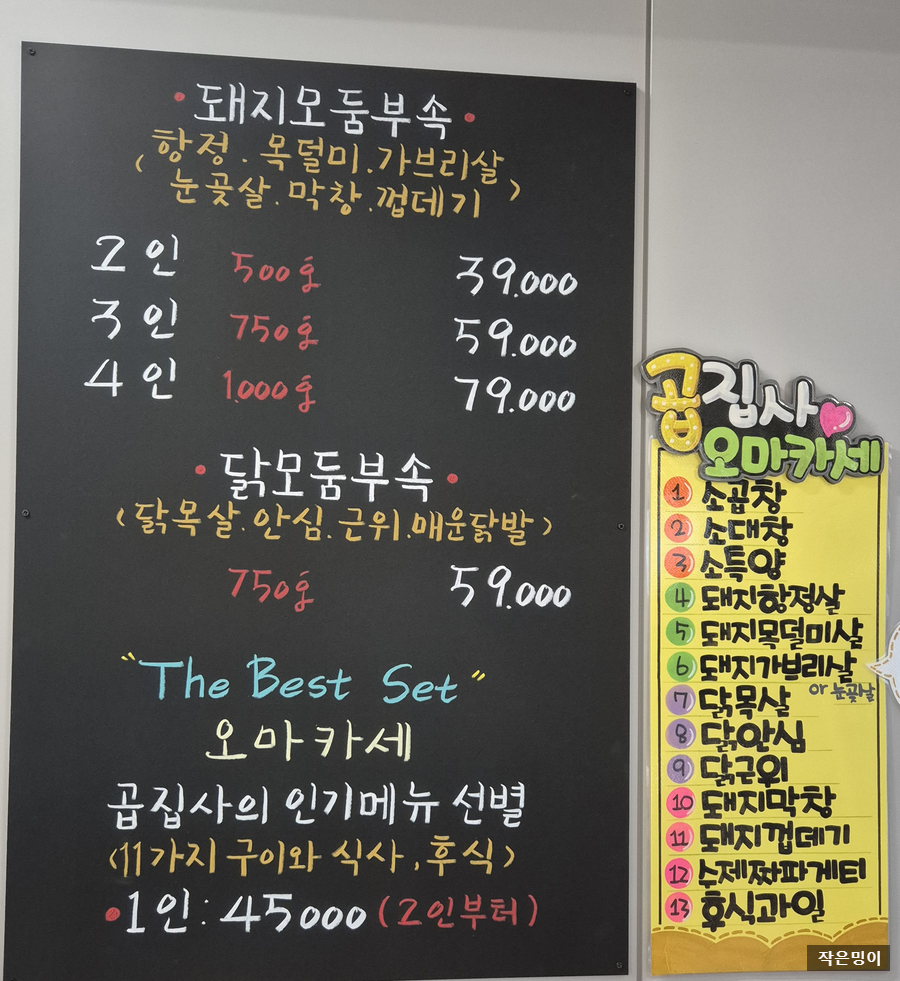 돼지모둠부속
(항정.목덜미.가브리살
눈곷살.막창.껍데기)
2인 500g 39.000
3인 750g 59.000
4인 1.000g 79.000
닭모둠부속
(닭목살.안심.근위.매운닭발)
750g 59.000
"The Best Set"
오마카세
곱집사의 인기메뉴 선별
(11가지 구이와 식사, 후식)
1인: 45000 (2인부터)
곱집사
오마카세
1 소곱창
2 소대창
3 소특양
4 돼지항정살
5 돼지목덜미살
6 돼지가브리살
or 눈곷살
7 닭목살
8 닭안심
9 닭근위
10 돼지막창
11 돼지껍데기
12 수제짜파게티
13 후식과일
작은밍이